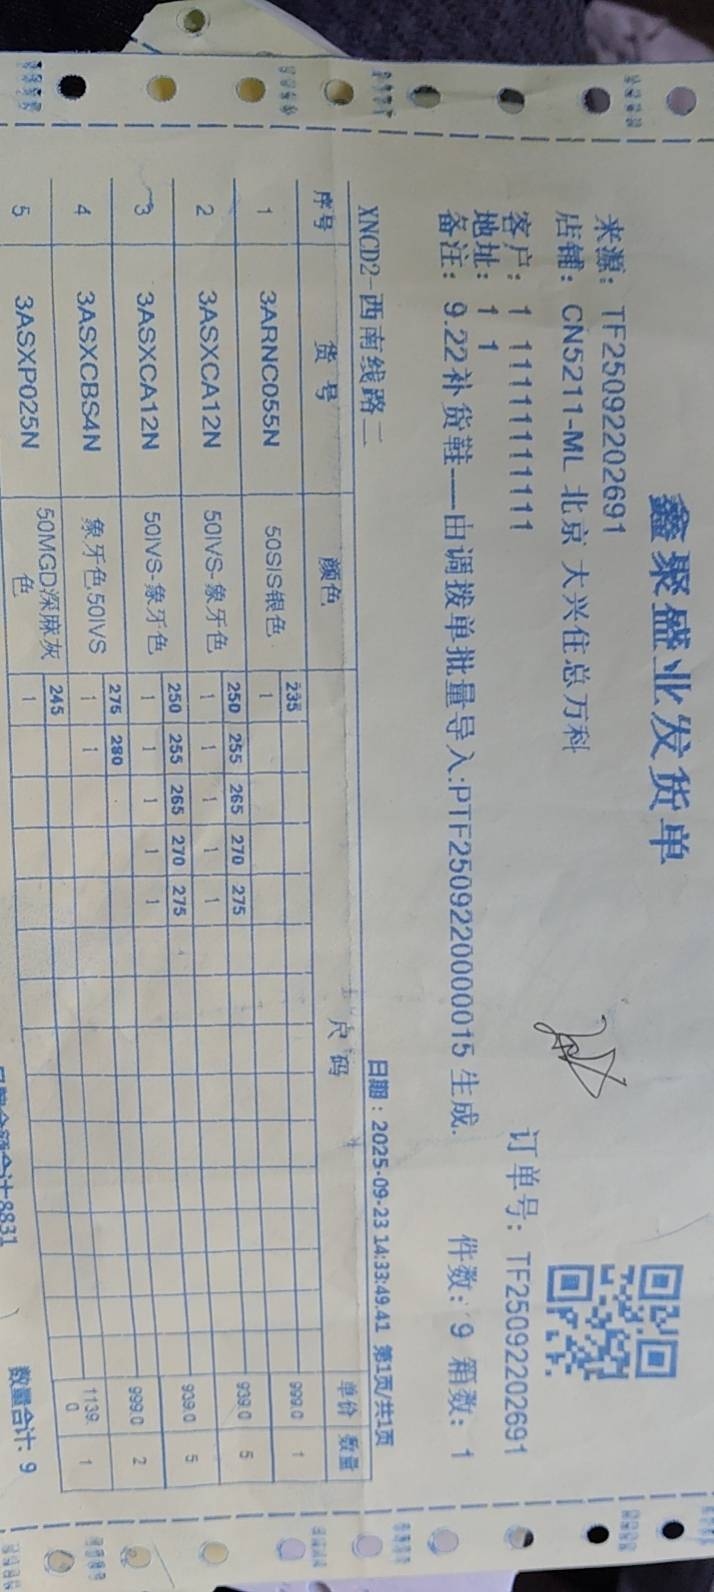 鑫聚盛业发货单
来源: TF25092202691
店铺: CN5211-ML 北京大兴住总万科
客户: 1 11111111111 订单号: TF25092202691
地址: 1 1
备注: 9.22补货鞋一由调拨单批量导入:PTF2509220000015 生成. 件数: 9 箱数: 1
XNCD2-西南线路二 日期: 2025-09-23 14:33:49.41 第1页/共1页
序号 货号 颜色 尺码 单价 数量
235
1 3ARNC055N 50SIS银色 1 999.0 1
250 255 265 270 275
2 3ASXCA12N 50IVS-象牙色 1 1 1 1 1 939.0 5
250 255 265 270 275
3 3ASXCA12N 50IVS-象牙色 1 1 1 1 1 939.0 5
275 280
4 3ASXCBS4N 象牙色50IVS 1 1 999.0 2
245
5 3ASXP025N 50MGD深麻灰色 1 1139.0 1
数量合计: 9
合计8831